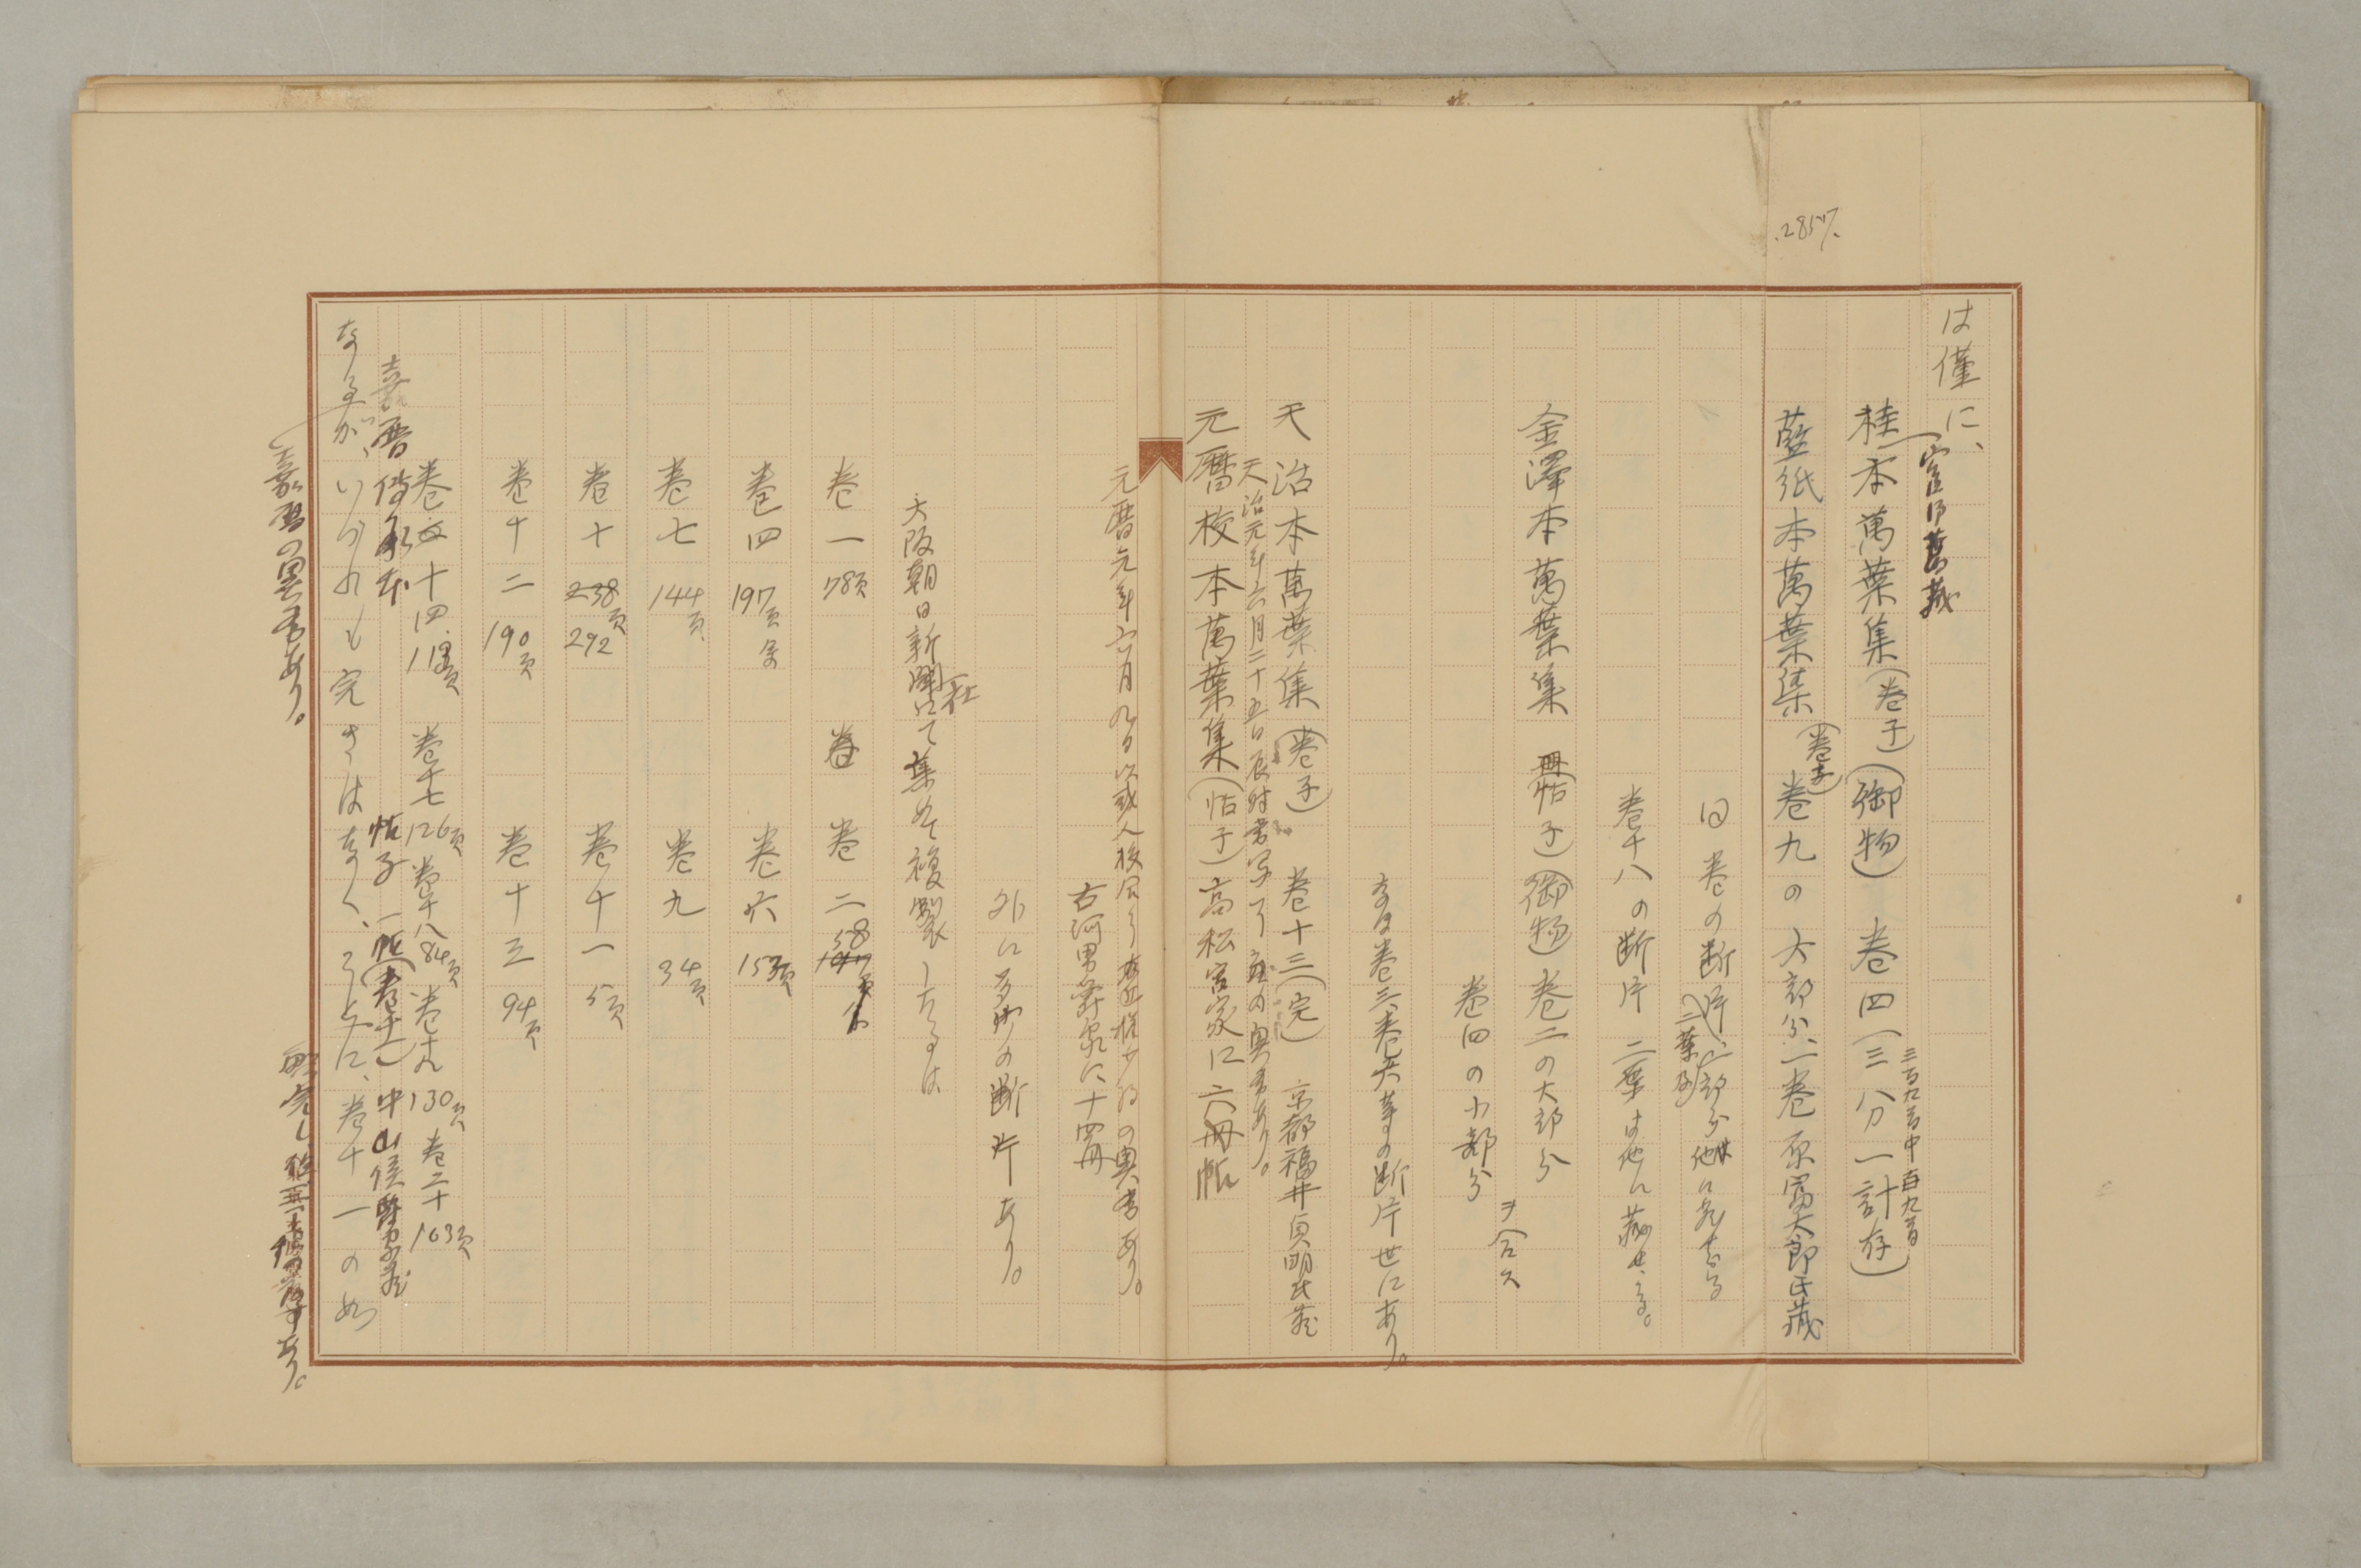 .28517.
は僅に、
一宮御旧蔵
三百九首中百九首
桂本萬葉集(巻子)(御物) 巻四(三分一計存)
藍紙本萬葉集(巻子) 巻九の大部分、一巻 原富太郎氏蔵
同巻の断片
巻十八の断片 二葉は他に蔵せらる。
金澤本萬葉集 帖子(御物) 巻二の大部分
巻四の小部分
ヲ合ス
なほ巻三、巻六等の断片世にあり。
天治本萬葉集(巻子) 巻十三(完) 京都福井貞明氏蔵
天治元年六月二十五日辰時書写了
元暦校本萬葉集(帖子)高松宮家に六帖
元暦元年六月九日以或人校合了 の奥書あり。
古河男爵家に十四冊
外に多少の断片あり。
大阪朝日新聞社にて集めて複製したるは
巻一 78頁 巻二 58
巻四 197頁 巻六 153頁
巻七 144頁 巻九 34頁
巻十 238頁 292 巻十一 5頁
巻十二 190頁 巻十三 94頁
巻十四 118頁 巻十七 126頁 巻十八 84頁 巻十九 130頁 巻二十 163頁
嘉暦傳承本 帖子 一帖(巻十一) 中山侯爵家蔵
なるが、いづれも完きはなく、ことに、巻十一の如
嘉暦の奥書あり。